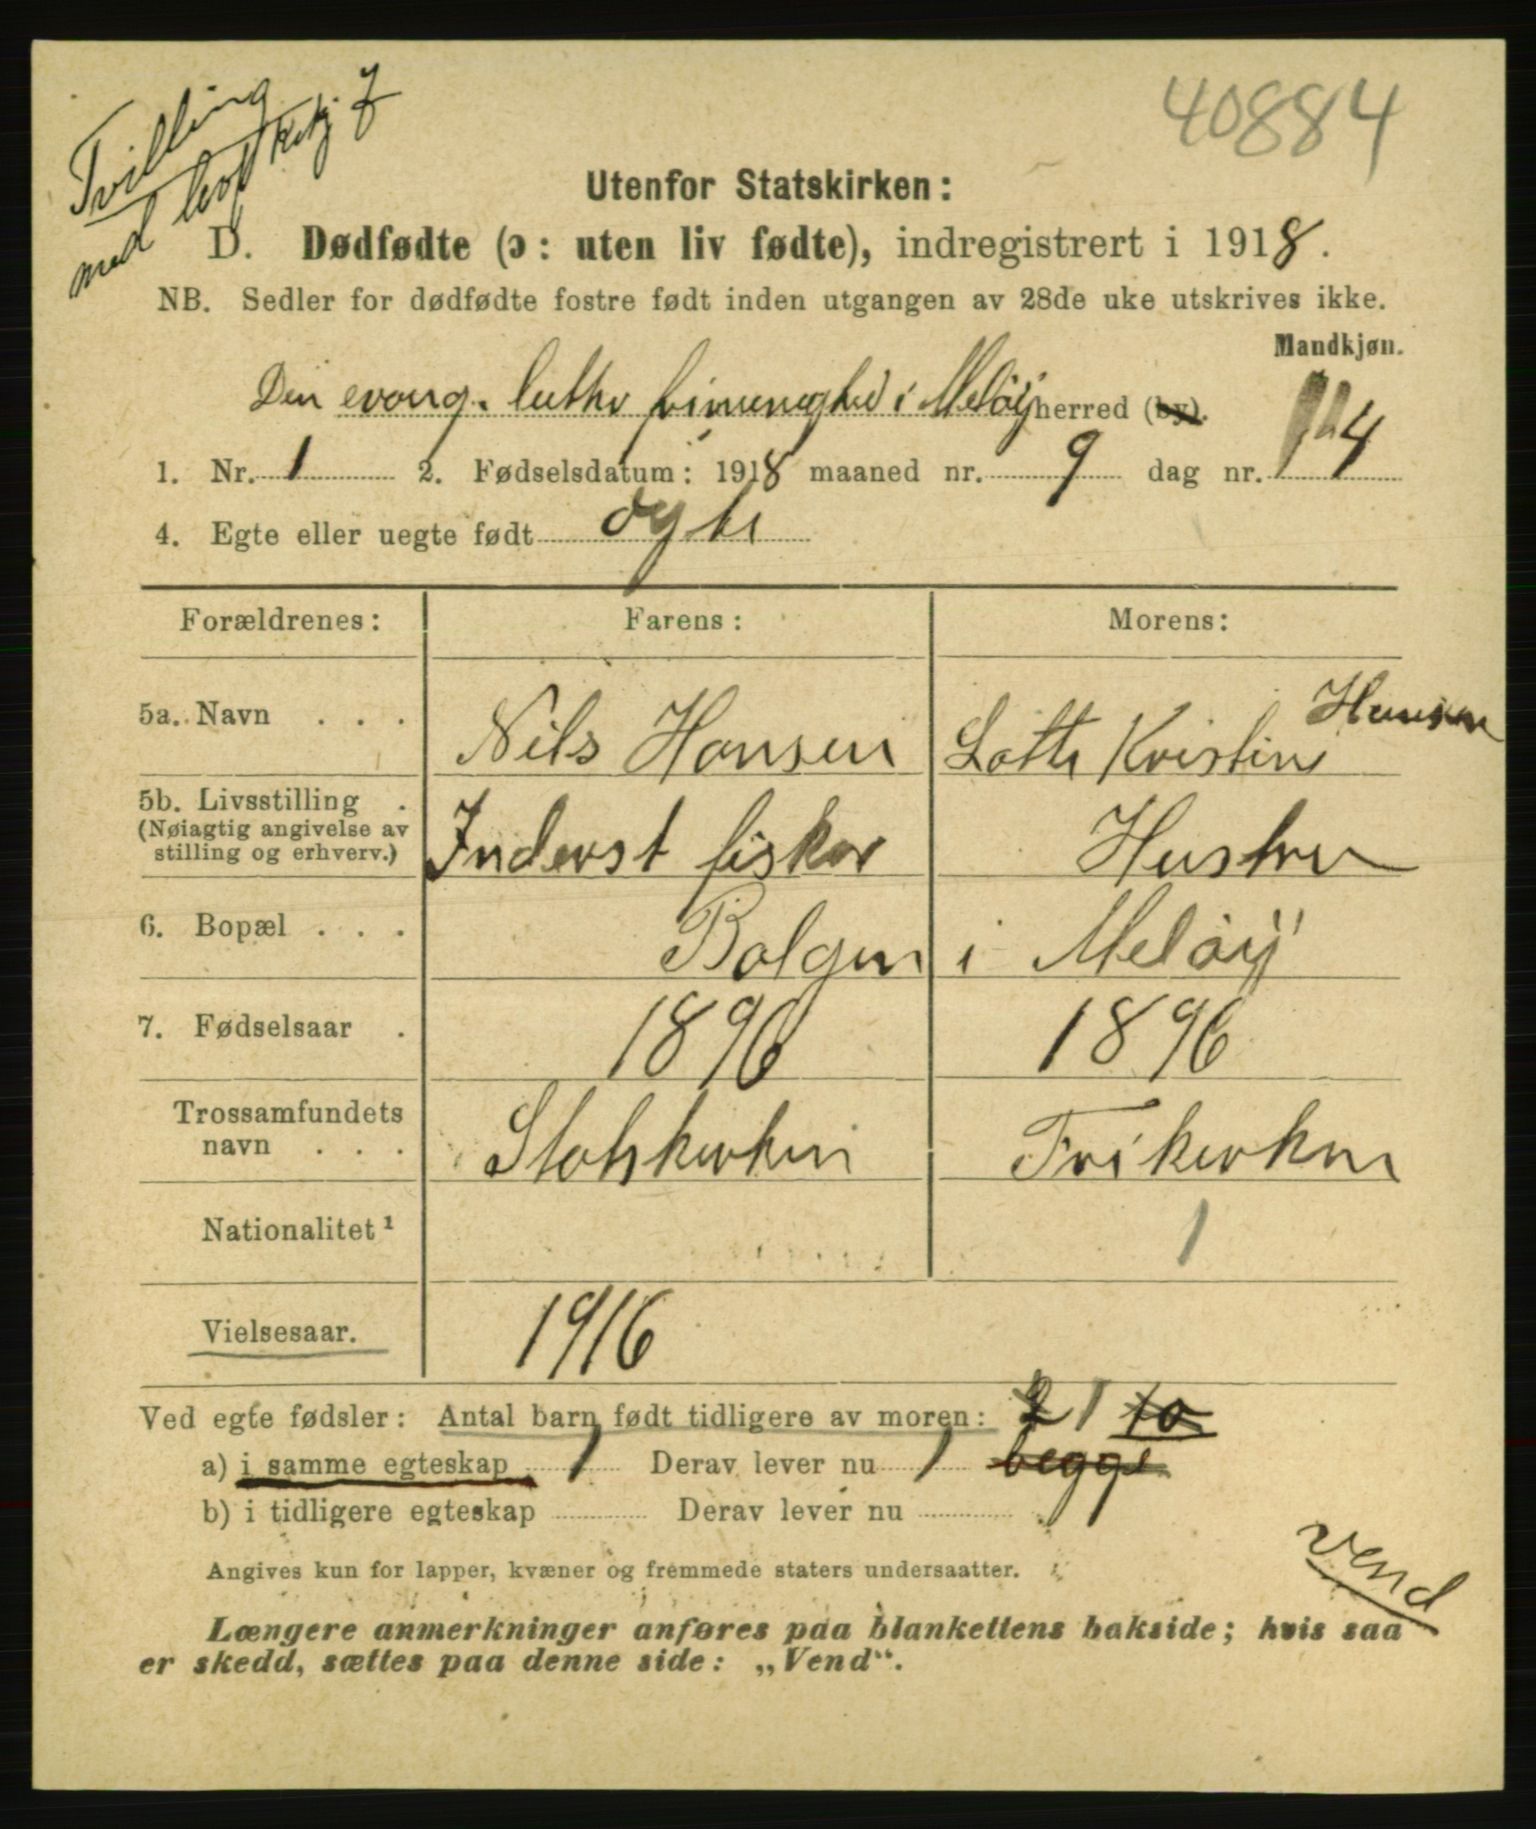 40884
Tvilling
med
Utenfor Statskirken:
D. Dødfødte (ɔ: uten liv fødte), indregistrert i 1918.
NB. Sedler for dødfødte fostre født inden utgangen av 28de uke utskrives ikke.
Mandkjøn.
Den evang. luthr frimenighed i Meløy herred (by).
1. Nr. 1 2. Fødselsdatum: 1918 maaned nr. 9 dag nr. 14
4. Egte eller uegte født egte
Forældrenes: Farens: Morens:
5a. Navn . . . Nils Hansen Lotte Kristine Hansen
5b. Livsstilling . Inderst fisker Hustru
(Nøiagtig angivelse av
stilling og erhverv.)
6. Bopæl . . . Bolgen i Meløy
7. Fødselsaar . 1896 1896
Trossamfundets
navn . . . Statskirken Frikirken
Nationalitet¹ 1
Vielsesaar. 1916
Ved egte fødsler: Antal barn født tidligere av moren: 2 1 to
a) i samme egteskap 1 Derav lever nu 1 begge
b) i tidligere egteskap Derav lever nu
Angives kun for lapper, kvæner og fremmede staters undersaatter.
Vend
Længere anmerkninger anføres paa blankettens bakside; hvis saa
er skedd, sættes paa denne side: „Vend“.